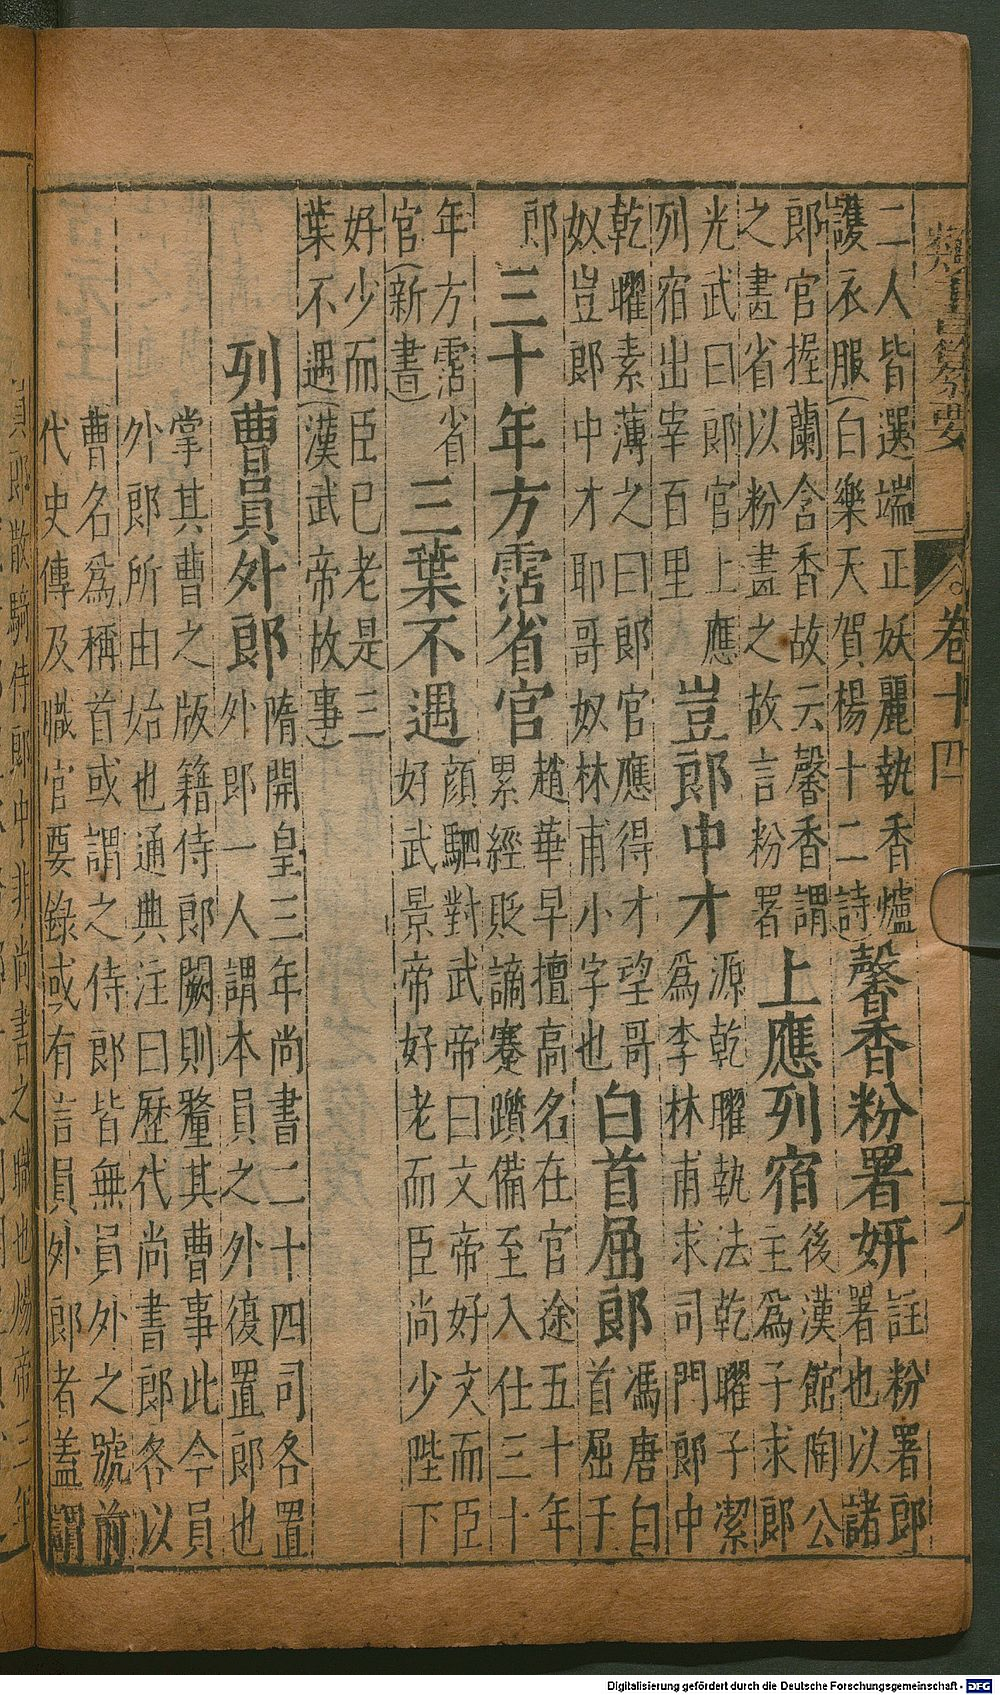 類書纂要 卷十四 六
二人皆選端正妖麗執香爐
護衣服(白樂天賀楊十二詩)
馨香粉署妍
註粉署郎
署也以諸
郎官握蘭含香故云馨香謂
之畫省以粉畫之故言粉署
上應列宿
後漢館陶公
主爲子求郎
光武曰郎官上應
列宿出宰百里
豈郎中才
源乾曜執法乾曜子潔
爲李林甫求司門郎中
乾曜素薄之曰郎官應得才望哥
奴豈郎中才耶哥奴林甫小字也
白首屈郎
馮唐白
首屈于
郎
三十年方霑省官
趙華早擅高名在官途五十年
累經貶謫蹇躓備至入仕三十
年方霑省
官(新書)
三葉不遇
顏駟對武帝曰文帝好文而臣
好武景帝好老而臣尚少陛下
好少而臣已老是三
葉不遇(漢武帝故事)
列曹員外郎
隋開皇三年尚書二十四司各置
外郎一人謂本員之外復置郎也
掌其曹之版籍侍郎闕則釐其曹事此今員
外郎所由始也通典注曰歷代尚書郎各以
曹名爲稱首或謂之侍郎皆無員外之號前
代史傳及職官要錄或有言員外郎者蓋謂
員郎散騎侍郎中非尚書之職也煬帝三年
Digitalisierung gefördert durch die Deutsche Forschungsgemeinschaft - DFG